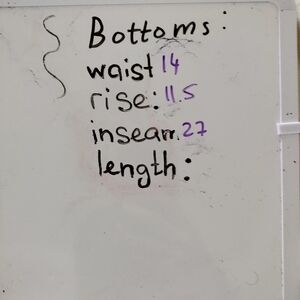 Bottoms:
waist 14
rise: 11.5
inseam. 27
length: